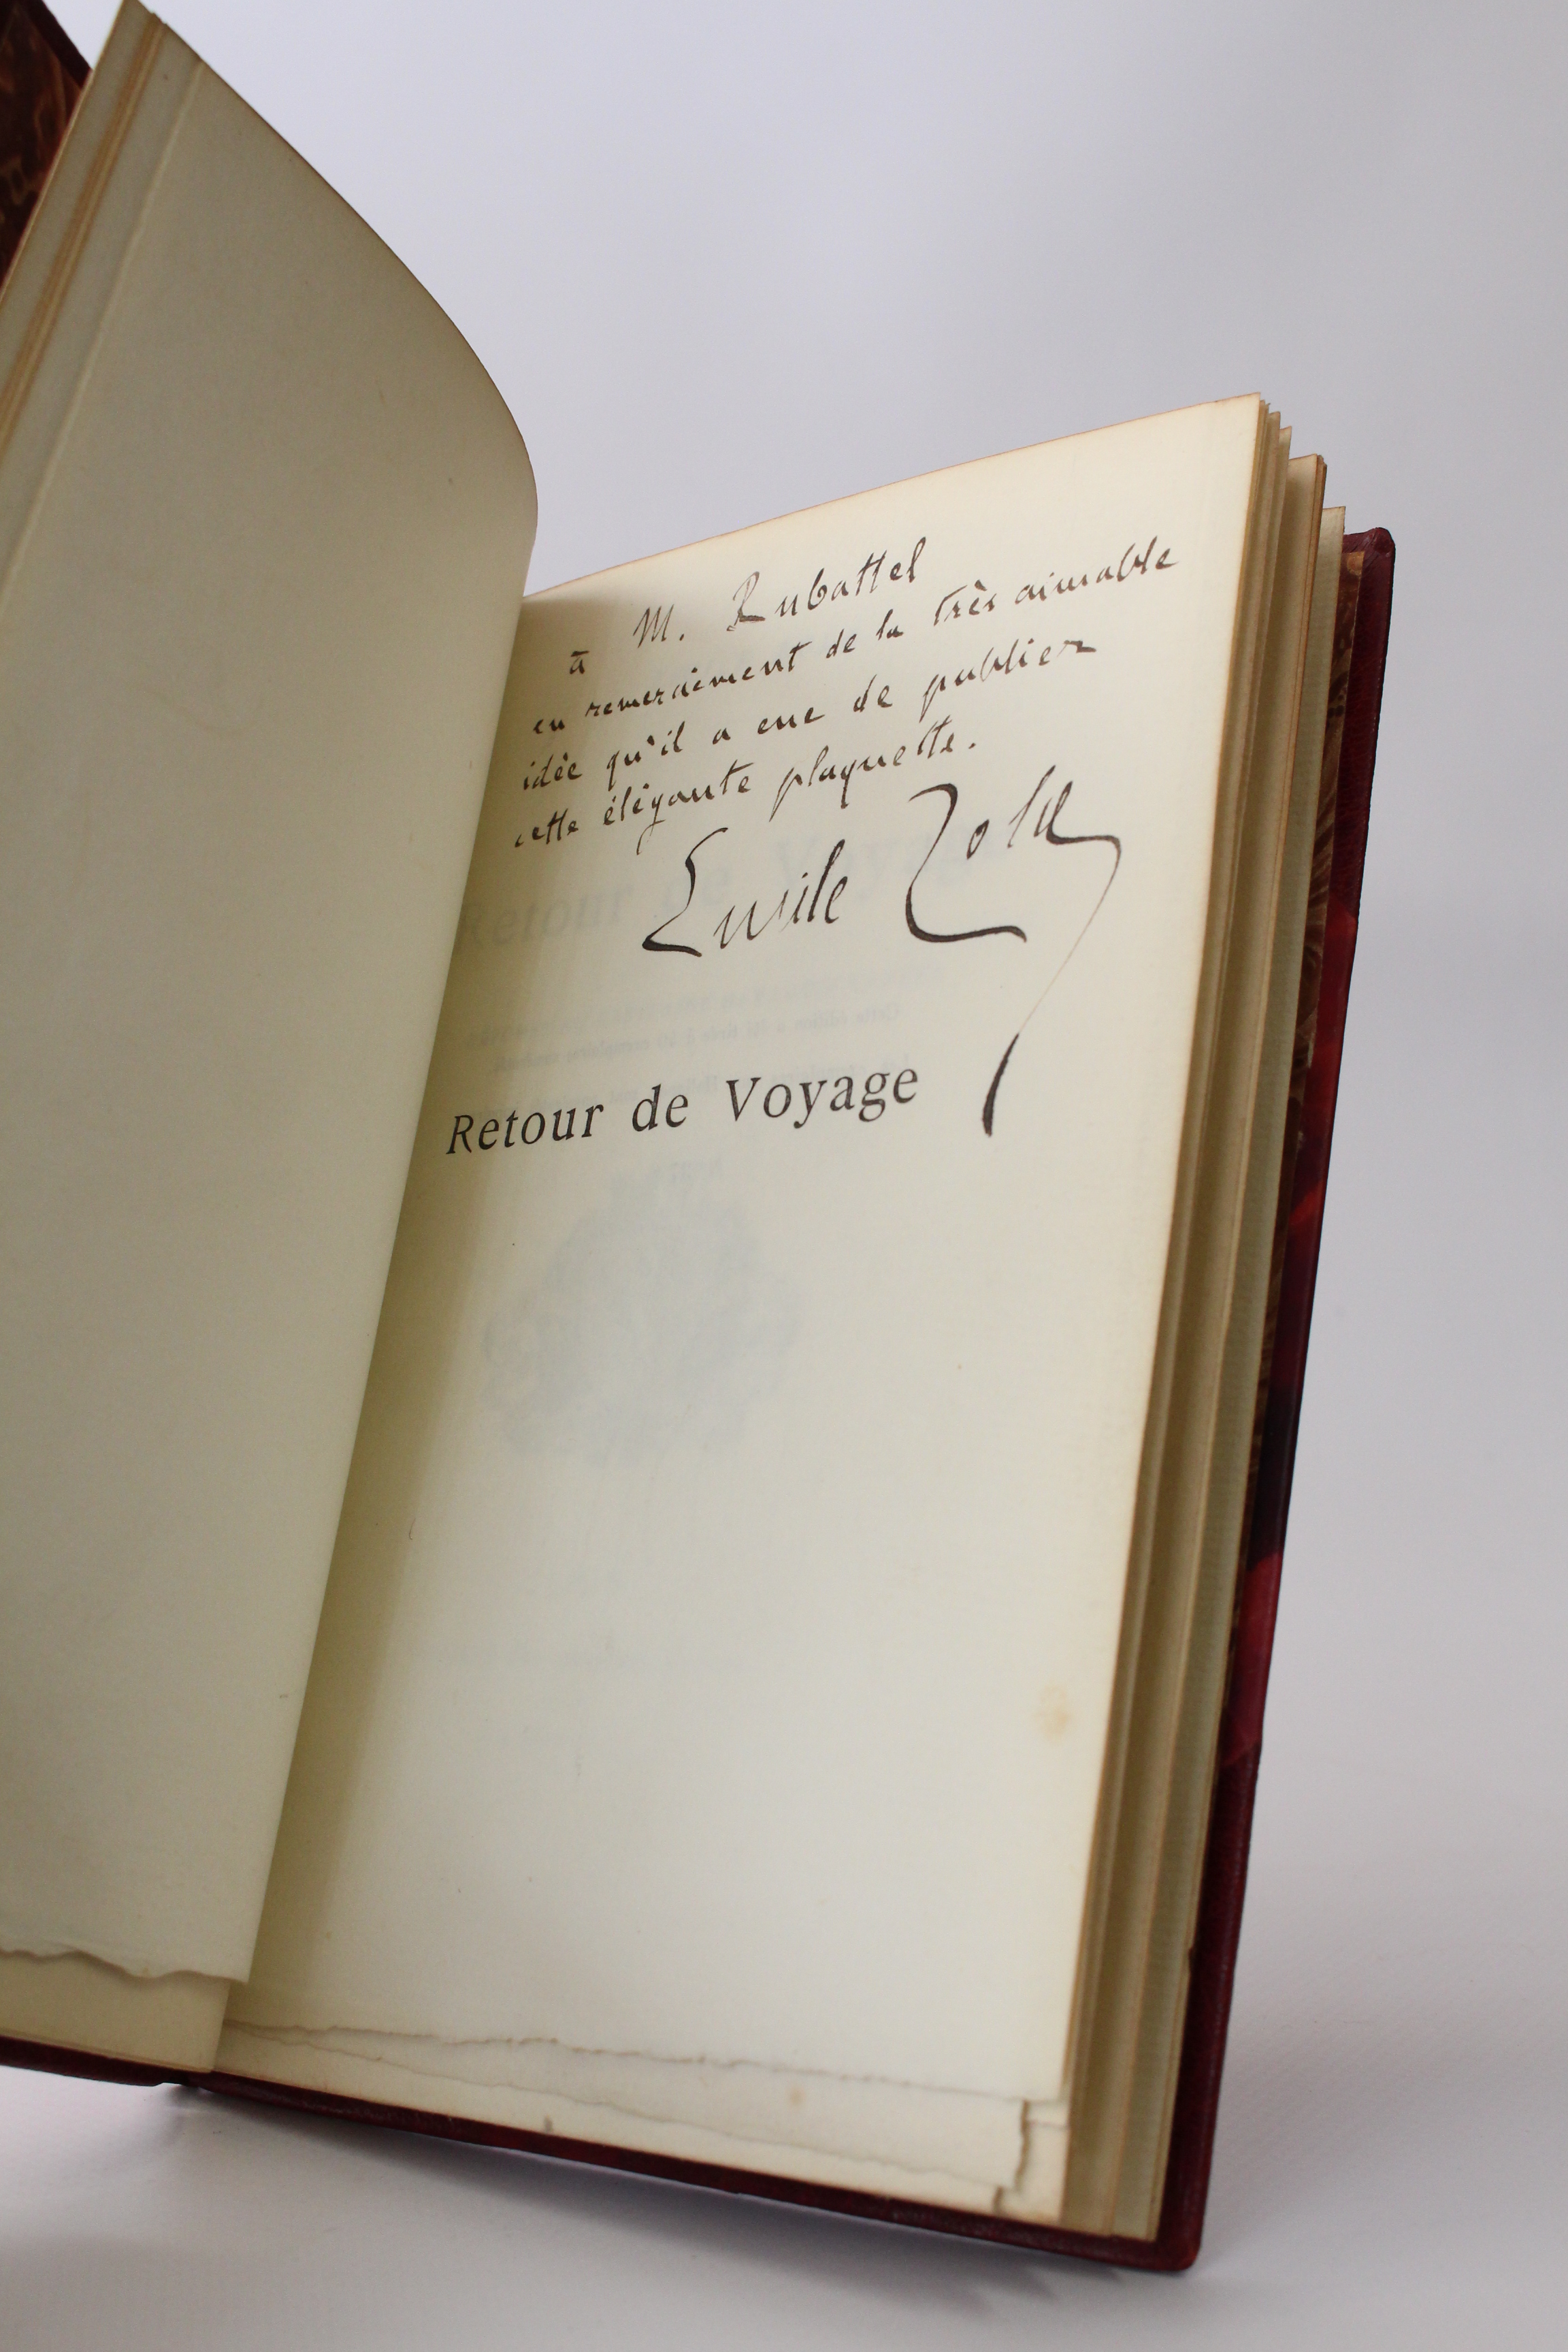 à M. Rubattel
en remerciement de la très aimable
idée qu'il a eue de publier
cette élégante plaquette.
Emile Zola
Retour de Voyage